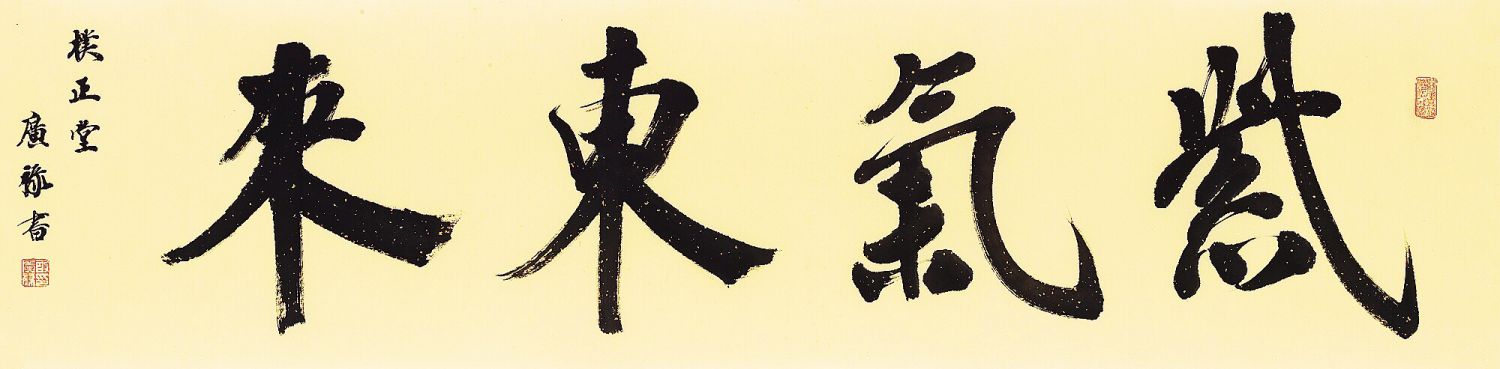 紫氣東來
樸正堂
廣祿書